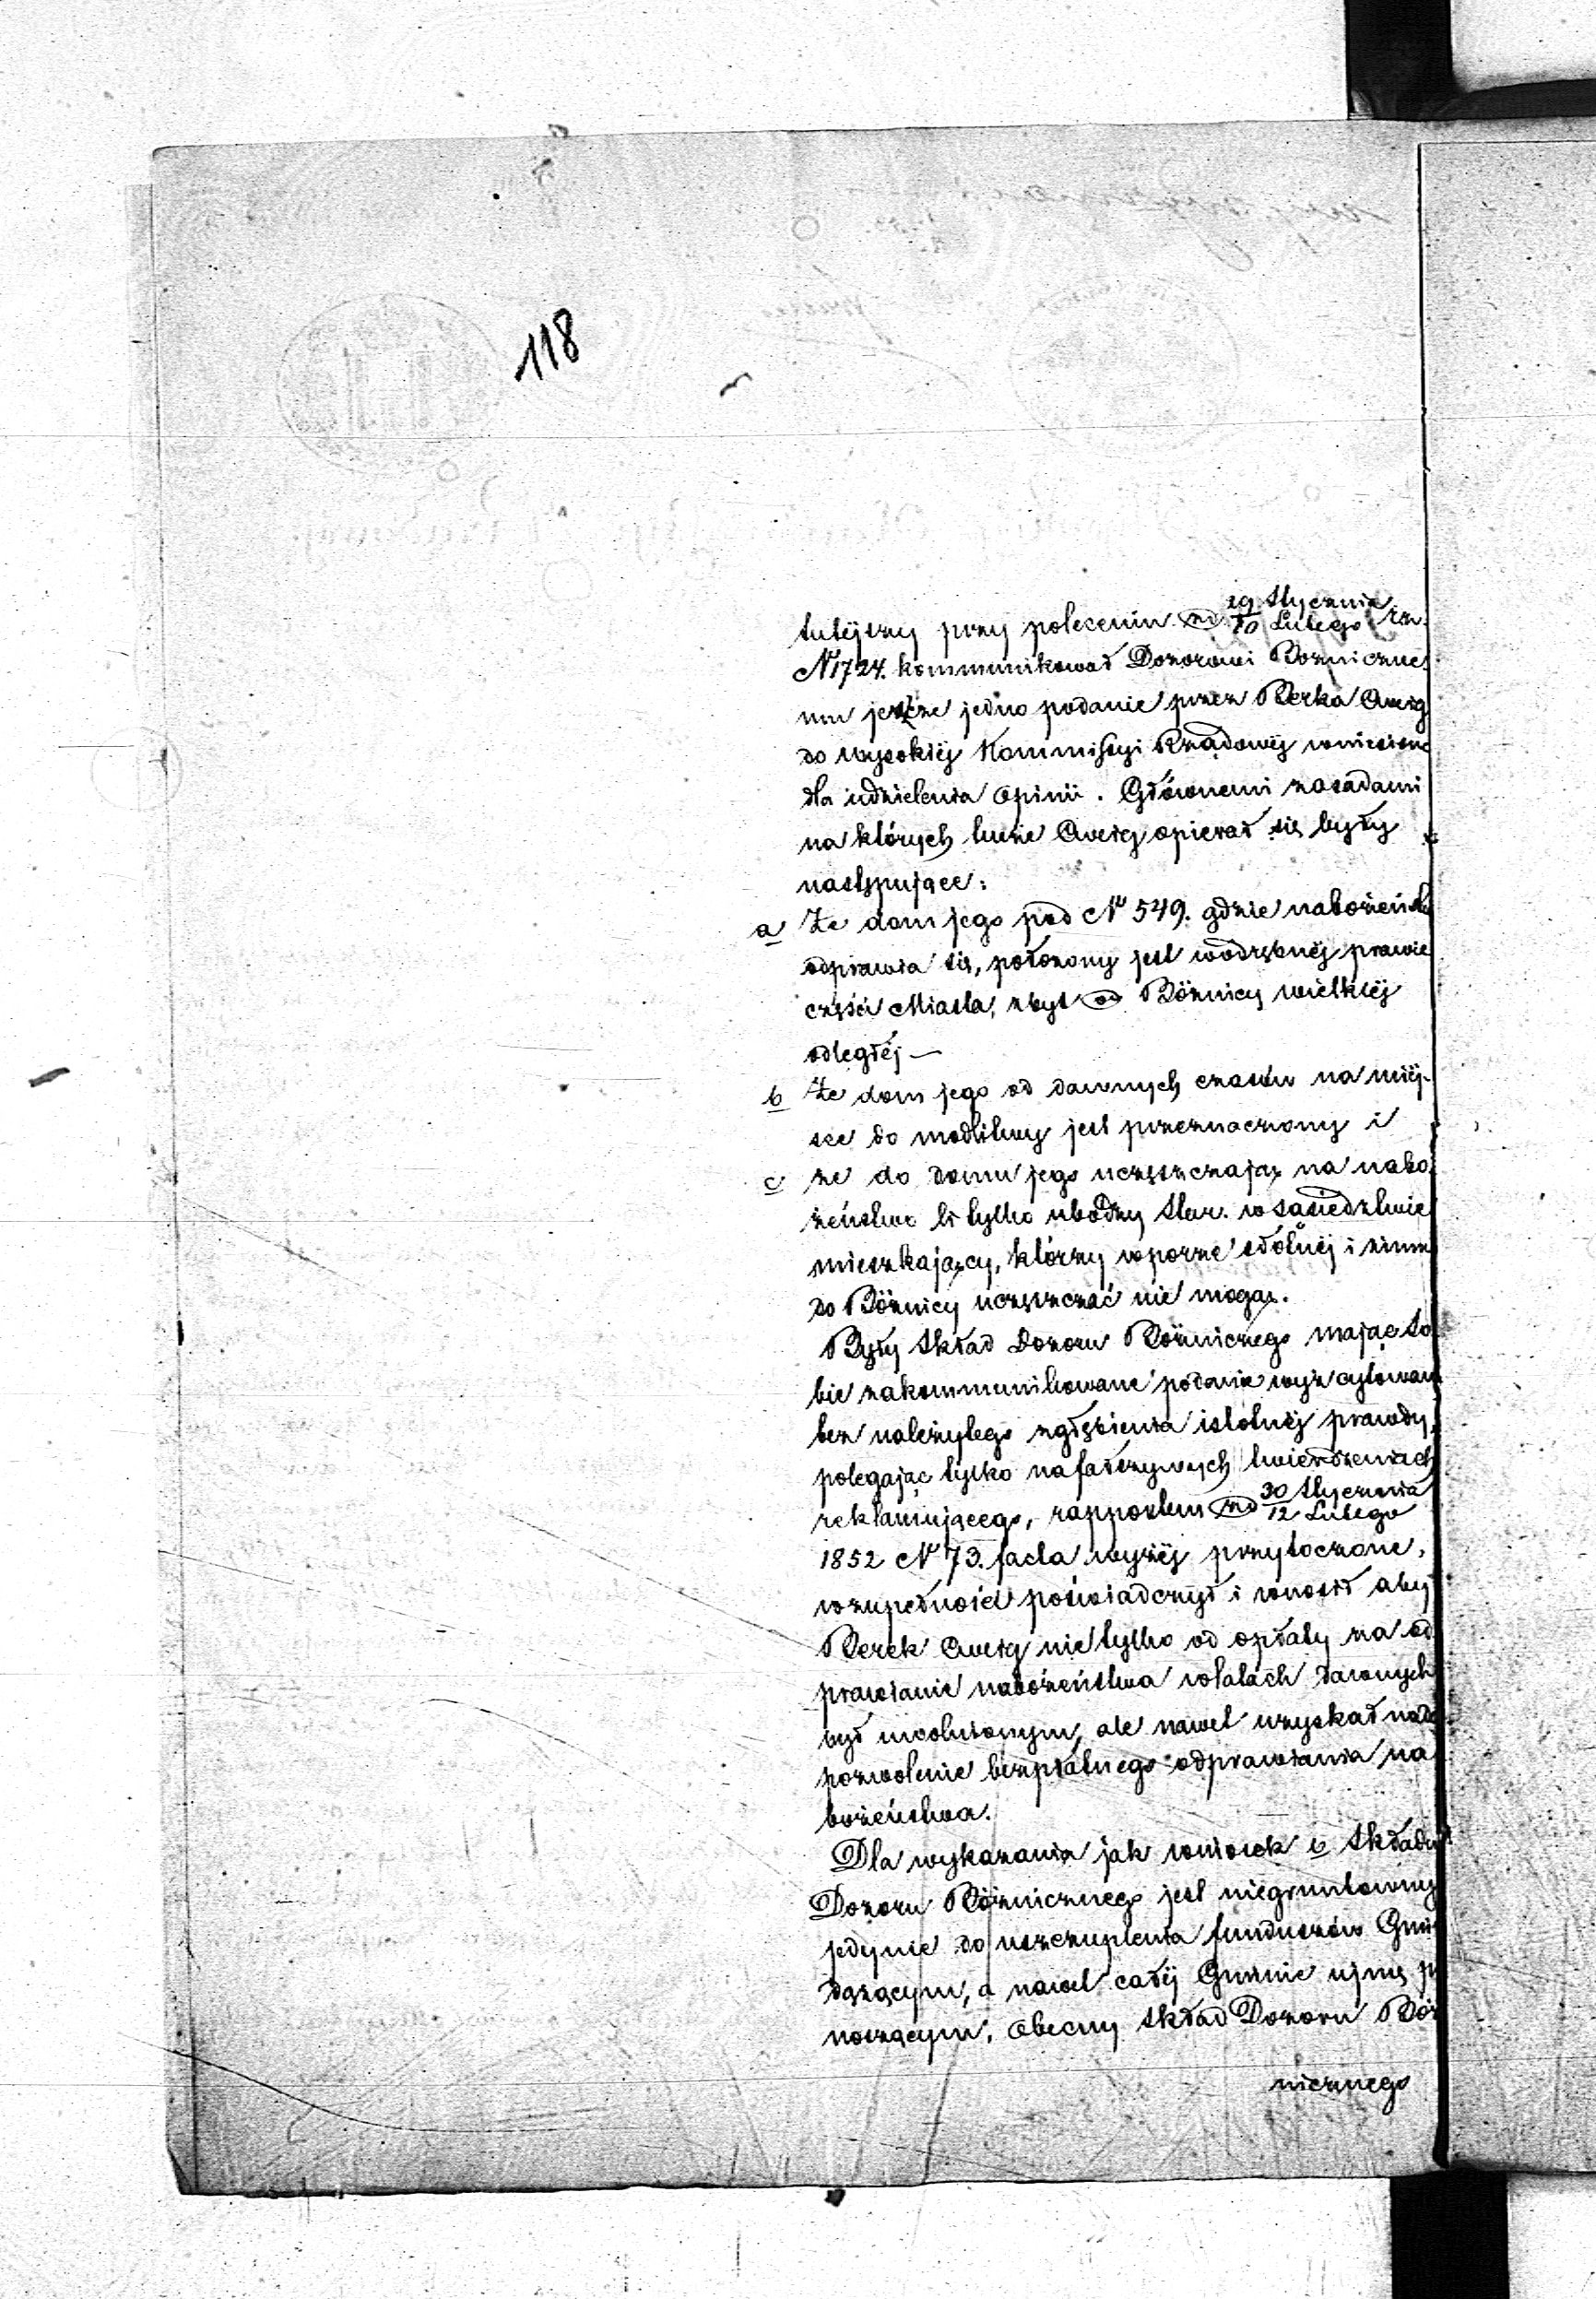 118
tutéjszy przy poleceniu zd 29/10 Stycznia/Lutego rz.
N 1724. kommunikował Dozorowi Bozniczne
mu jeszcze jedno podanie przez Berka Cweig
do wysokiéj Kommissyi Rządowéj wniesione
dla udzielenia opinii. Głównemi zasadami
na których tenże Cweig opierał się były
następujące:
a Że dom jego pod N 549. gdzie nabożeństw
odprawia się, położony jest w odrębnéj prawie
części Miasta, zbyt od Bóżnicy wielkiéj
odległéj —
b Że dom jego od dawnych czasów na miéj-
sce do modlitwy jest przeznaczony i
c że do domu jego uczęszczają na nabo
żeństwo li tylko ubodzy Star. w sąsiedztwie
mieszkający, którzy w porze słótnéj i zimn
do Bóżnicy uczęszczać nie mogą.
Były Skład Dozoru Bóżniczego mając So
bie zakommunikowane podanie wyż cytowan
bez należytego zgłębienia istotnéj prawdy,
polegając tylko na fałszywych twierdzeniach
reklamującego, rapportem zd 30/12 Stycznia/Lutego
1852 N 73. facta wyżéj przytoczone,
w zupełności poświadczył i wnosił aby
Berek Cweig nie tylko od opłaty za od
prawianie nabożeństwa w latach dawnych
był uwolnionym, ale nawet uzyskał nadal
pozwolenie bezpłatnego odprawiania na
bożeństwa.
Dla wykazania jak wniosek b. Składu
Dozoru Bóżnicznego jest niegruntowny
jedynie do uszczuplenia funduszów Gmin
dążącym, a nawet całéj Gminie ujmę p
noszącym, obecny Skład Dozoru Bóż
nicznego